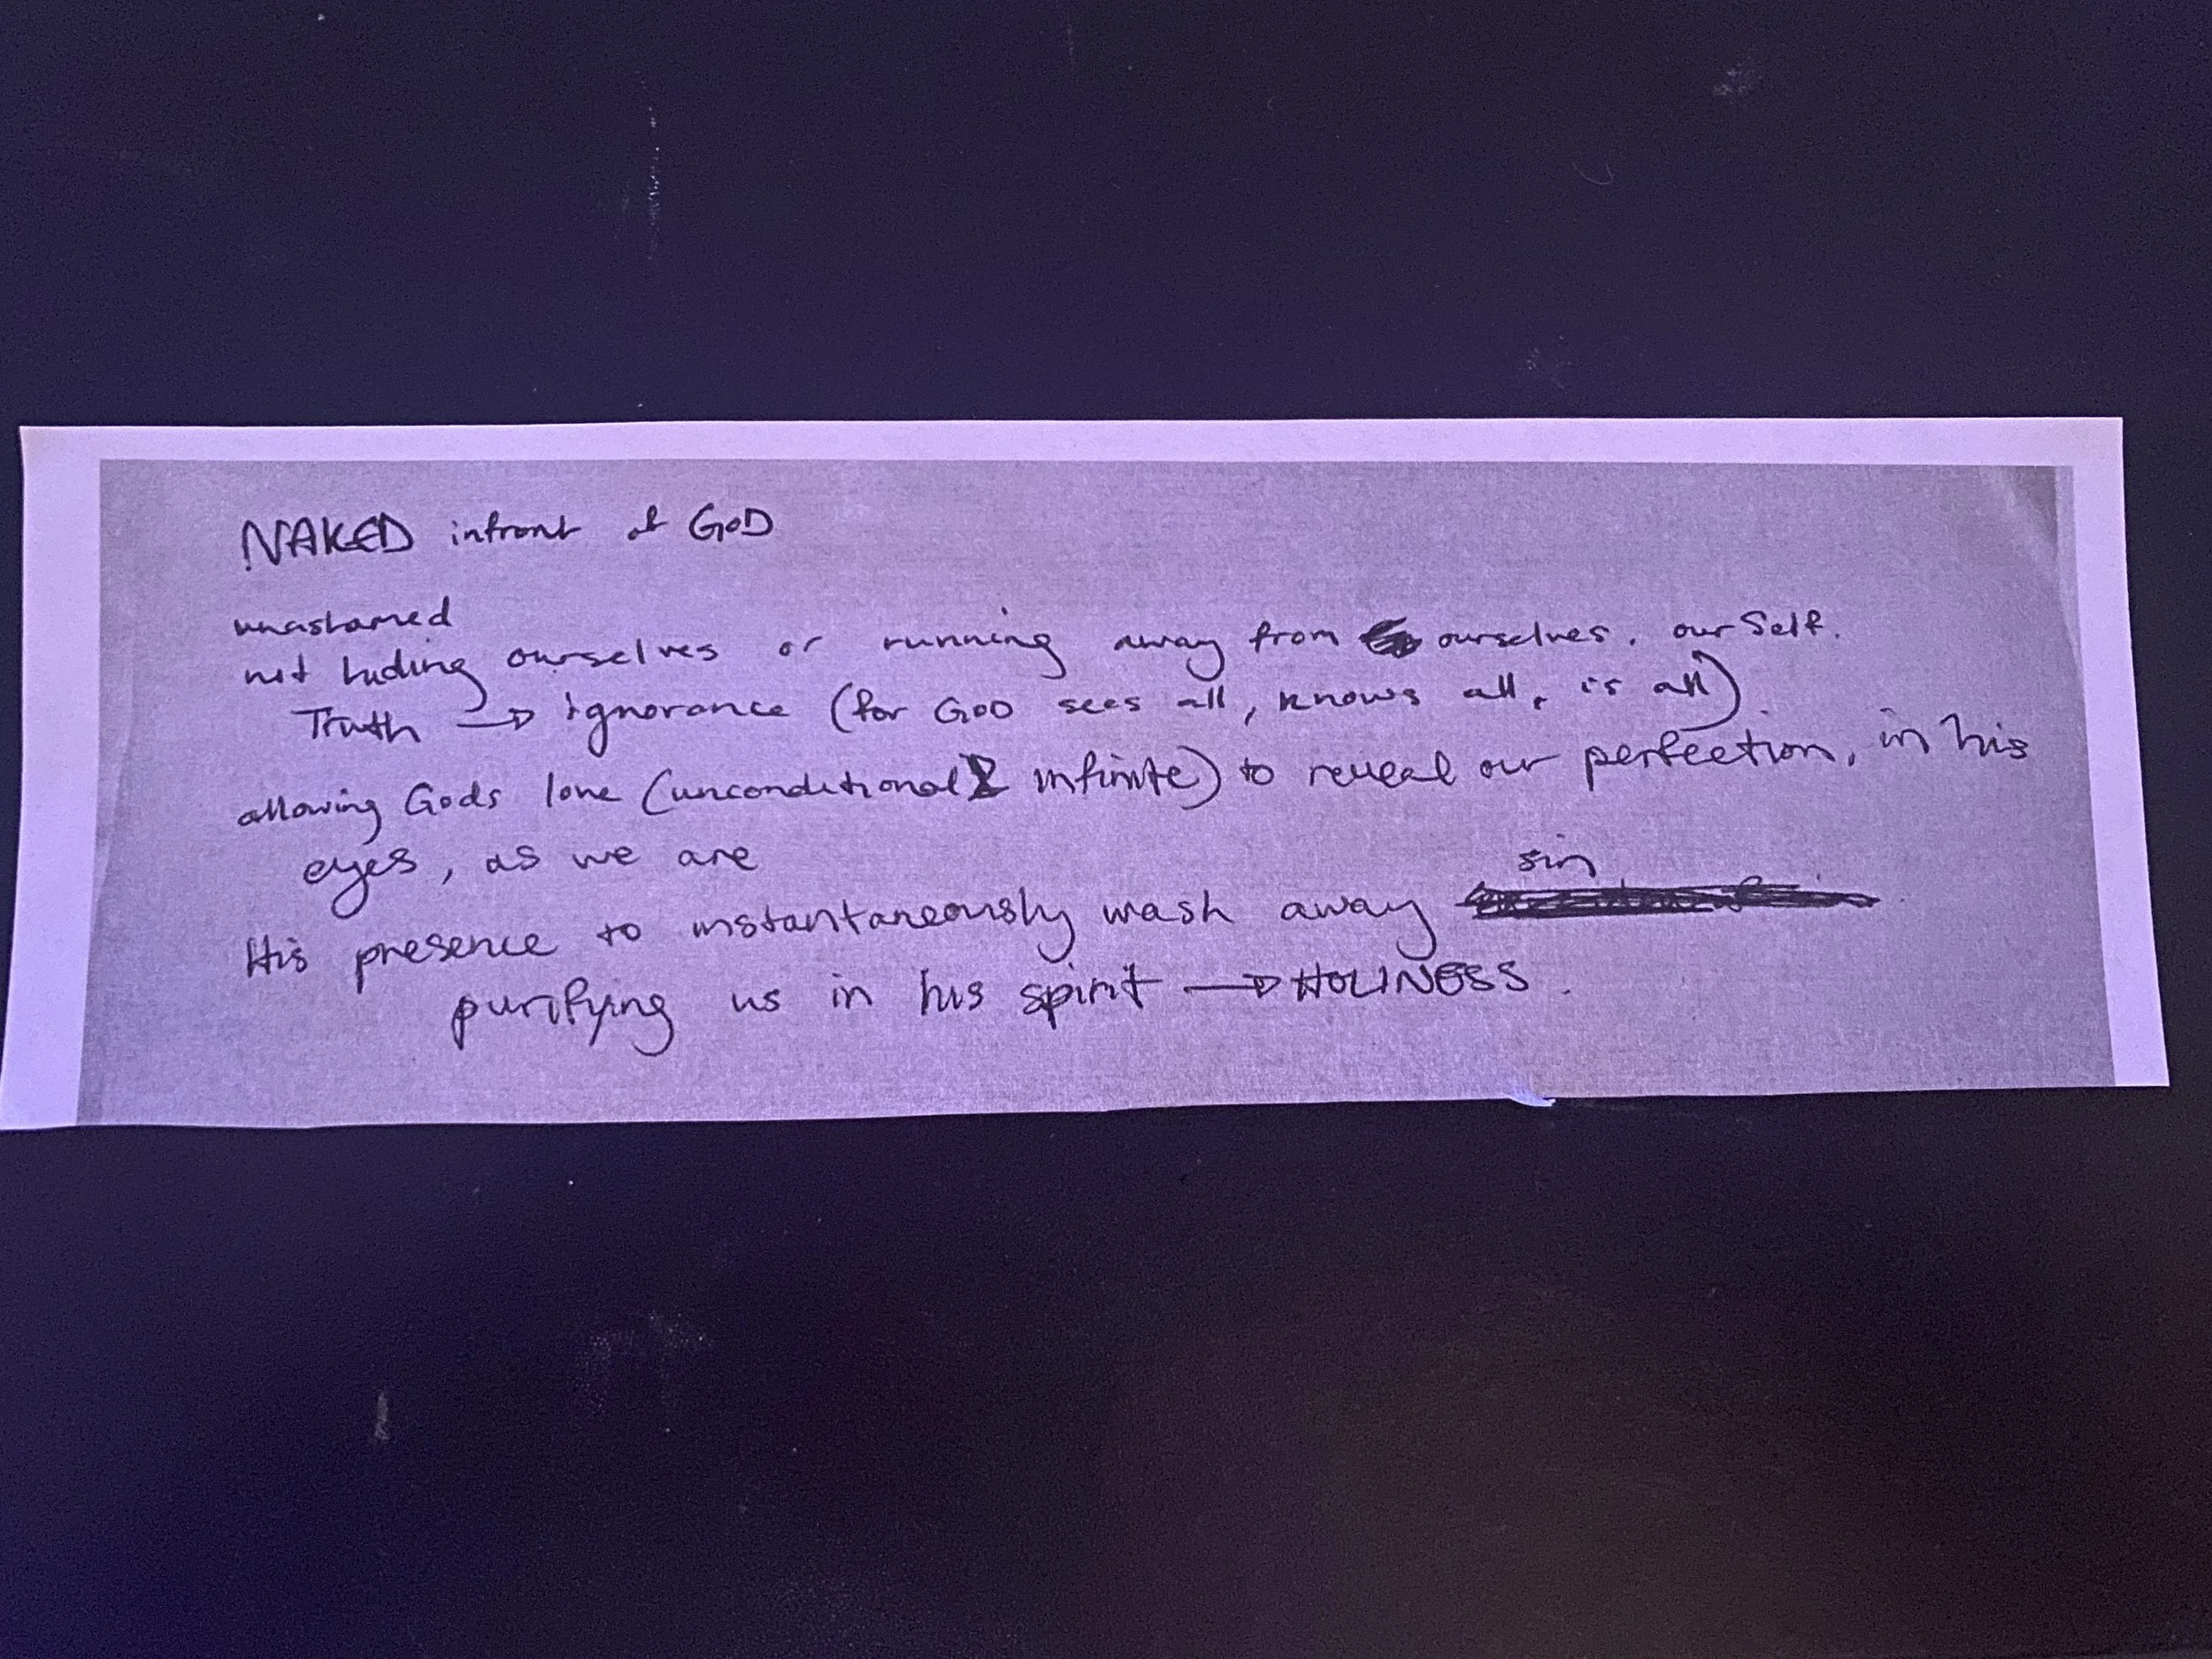 NAKED infront of GOD
unashamed
not hiding ourselves or running away from ourselves. our Self.
Truth → ignorance (for GOD sees all, knows all, is all)
allowing Gods love (unconditional & infinite) to reveal our perfection, in his
eyes, as we are
sin
His presence to instantaneously wash away
purifying us in his spirit → HOLINESS.